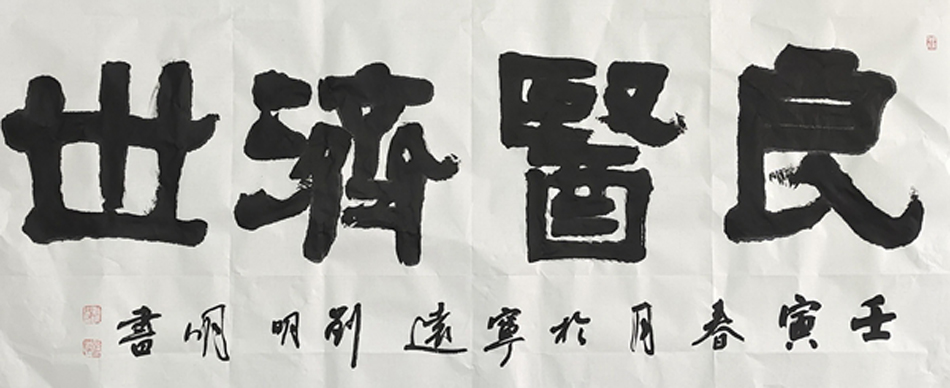 良醫濟世
壬寅春月於寧遠劉明明書